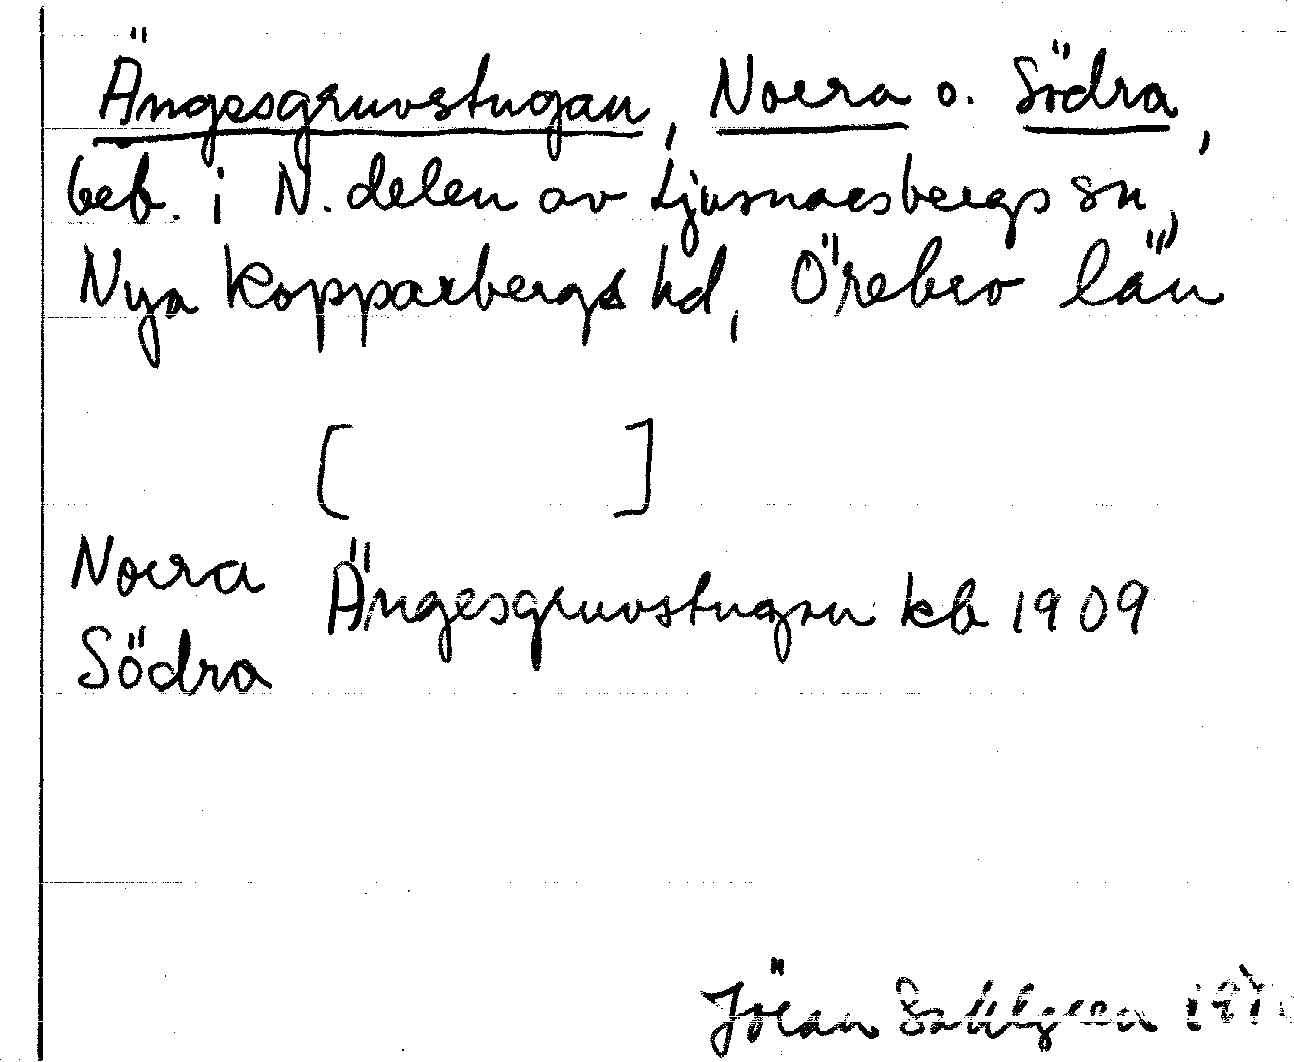 Ängesgruvstugan, Norra o. Södra,
beb. i N. delen av Ljusnarsbergs sn,
Nya Kopparbergs hd, Örebro län
[ ]
Norra
Ängesgruvstugan kb 1909
Södra
Jöran Sahlgren